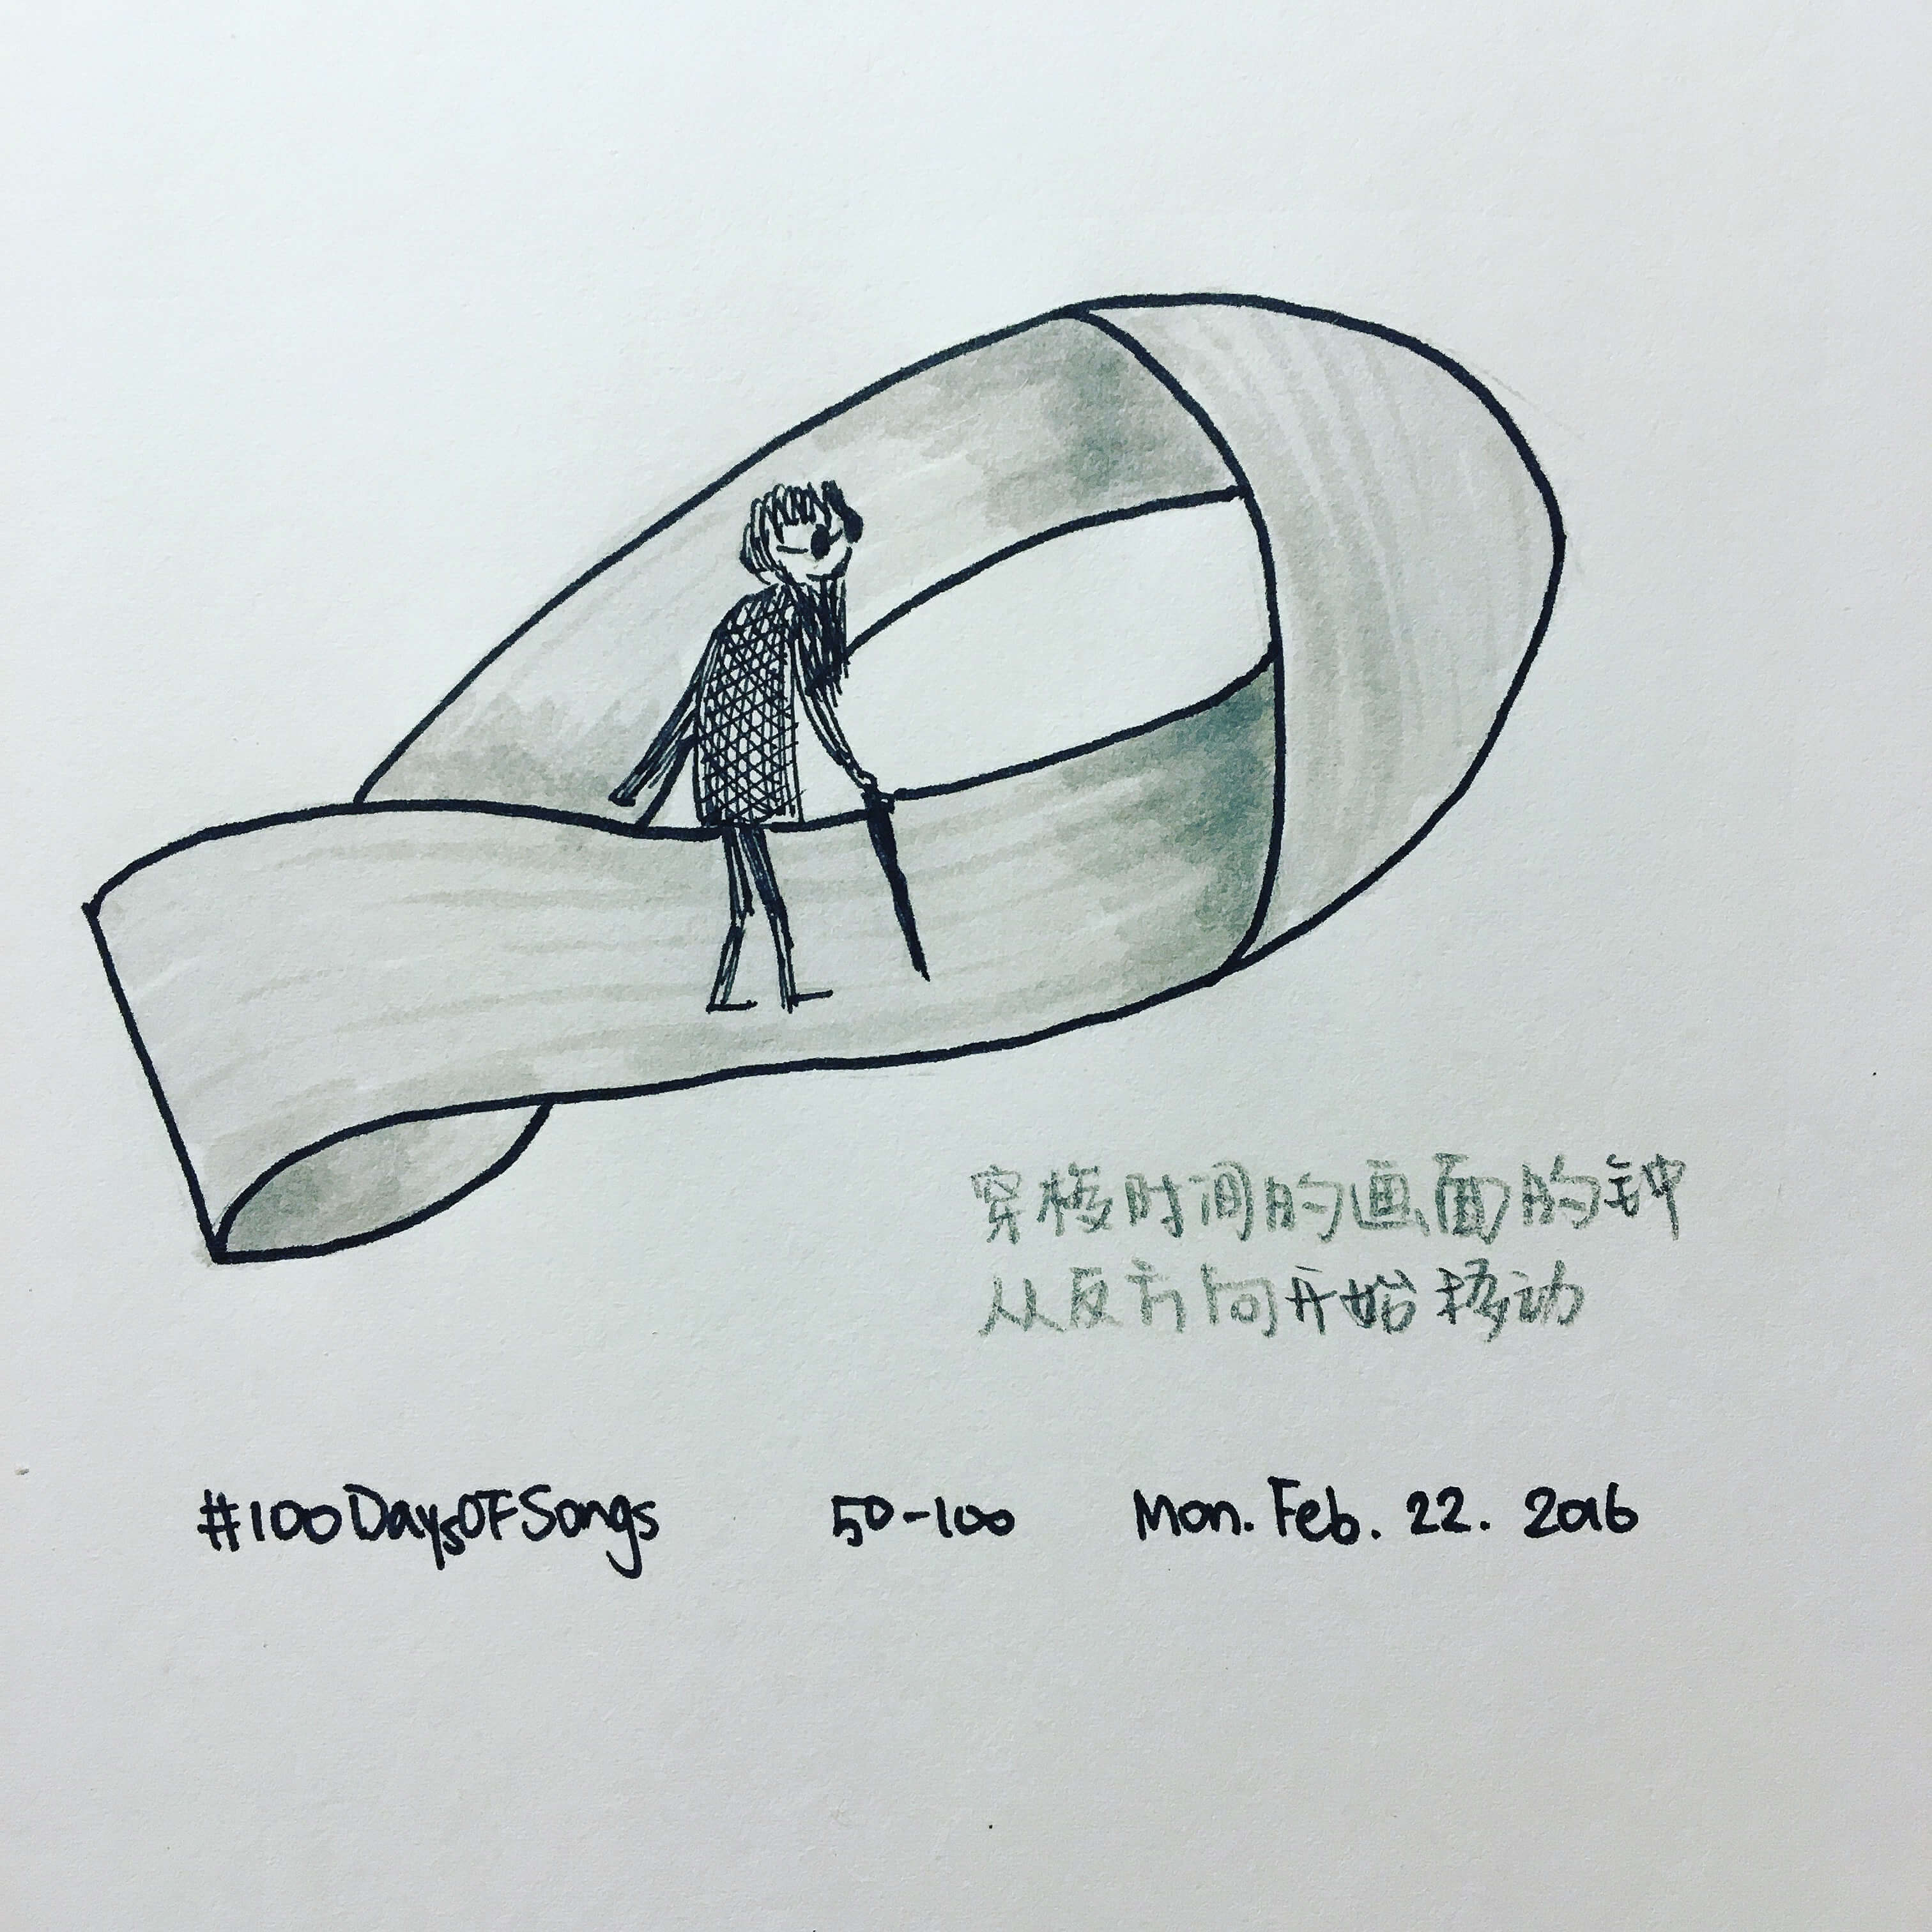 穿梭时间的画面的钟
从反方向开始移动
#100DaysOfSongs 50-100 Mon. Feb. 22. 2016